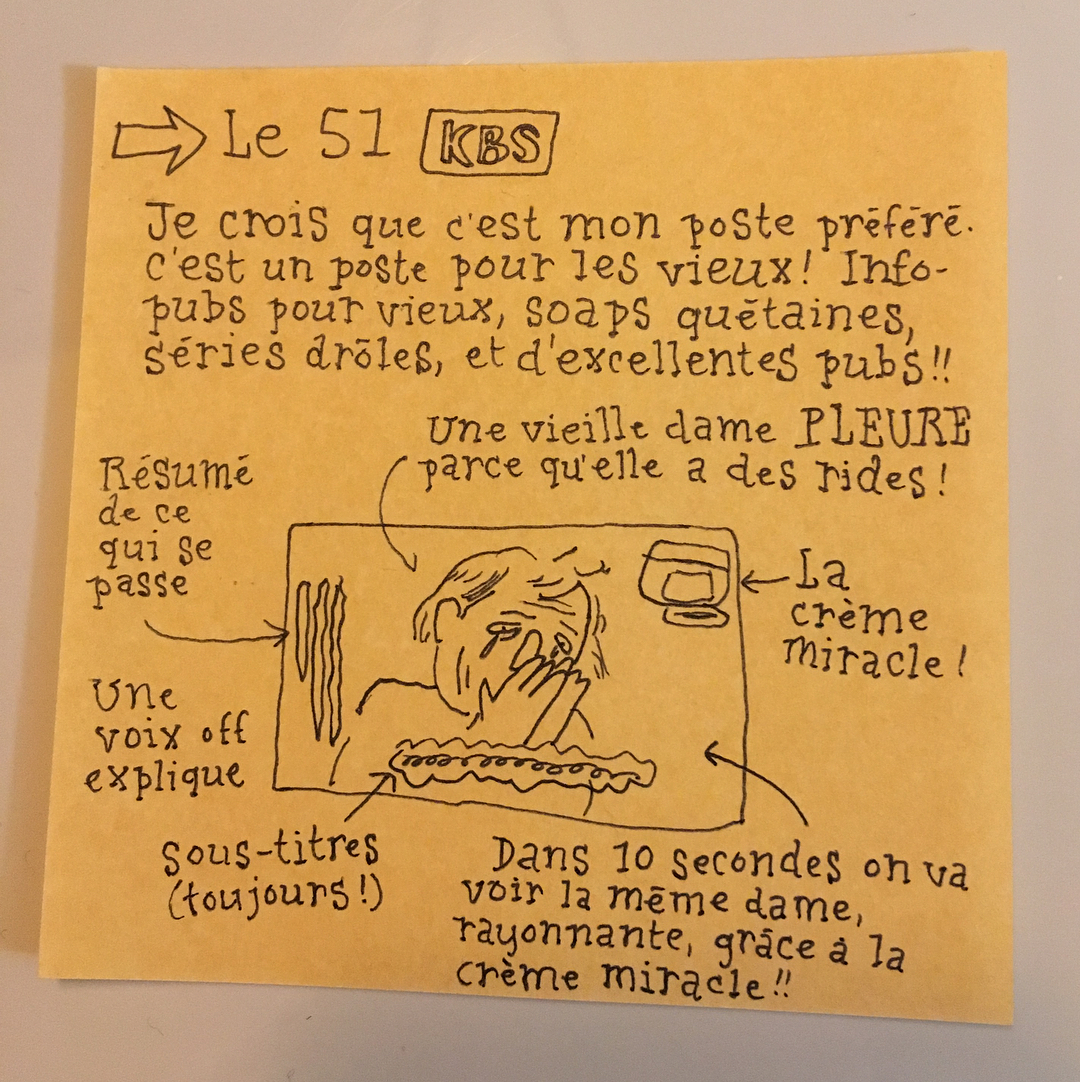 Le 51 KBS
Je crois que c'est mon poste préféré.
C'est un poste pour les vieux! Info-
pubs pour vieux, soaps quétaines,
séries drôles, et d'excellentes pubs!!
Une vieille dame PLEURE
parce qu'elle a des rides!
Résumé
de ce
qui se
passe
La
crème
miracle!
Une
voix off
explique
Sous-titres
(toujours!)
Dans 10 secondes on va
voir la même dame,
rayonnante, grâce à la
crème miracle!!